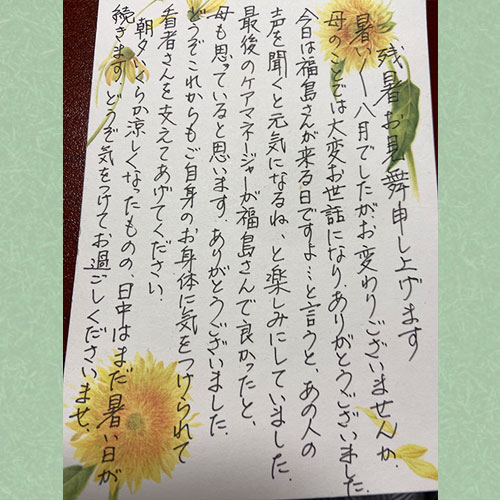 残暑お見舞申し上げます
暑い〱八月でしたが、お変わりございませんか.
母のことでは大変お世話になりありがとうございました.
今日は福島さんが来る日ですよ…と言うと、あの人の
声を聞くと元気になるね、と楽しみにしていました.
最後のケアマネージャーが福島さんで良かったと、
母も思っていると思います.ありがとうございました.
どうぞこれからもご自身のお身体に気をつけられて
看者さんを支えてあげてください.
朝夕いくらか涼しくなったものの、日中はまだ暑い日が
続きます.どうぞ気をつけてお過ごしくださいませ.